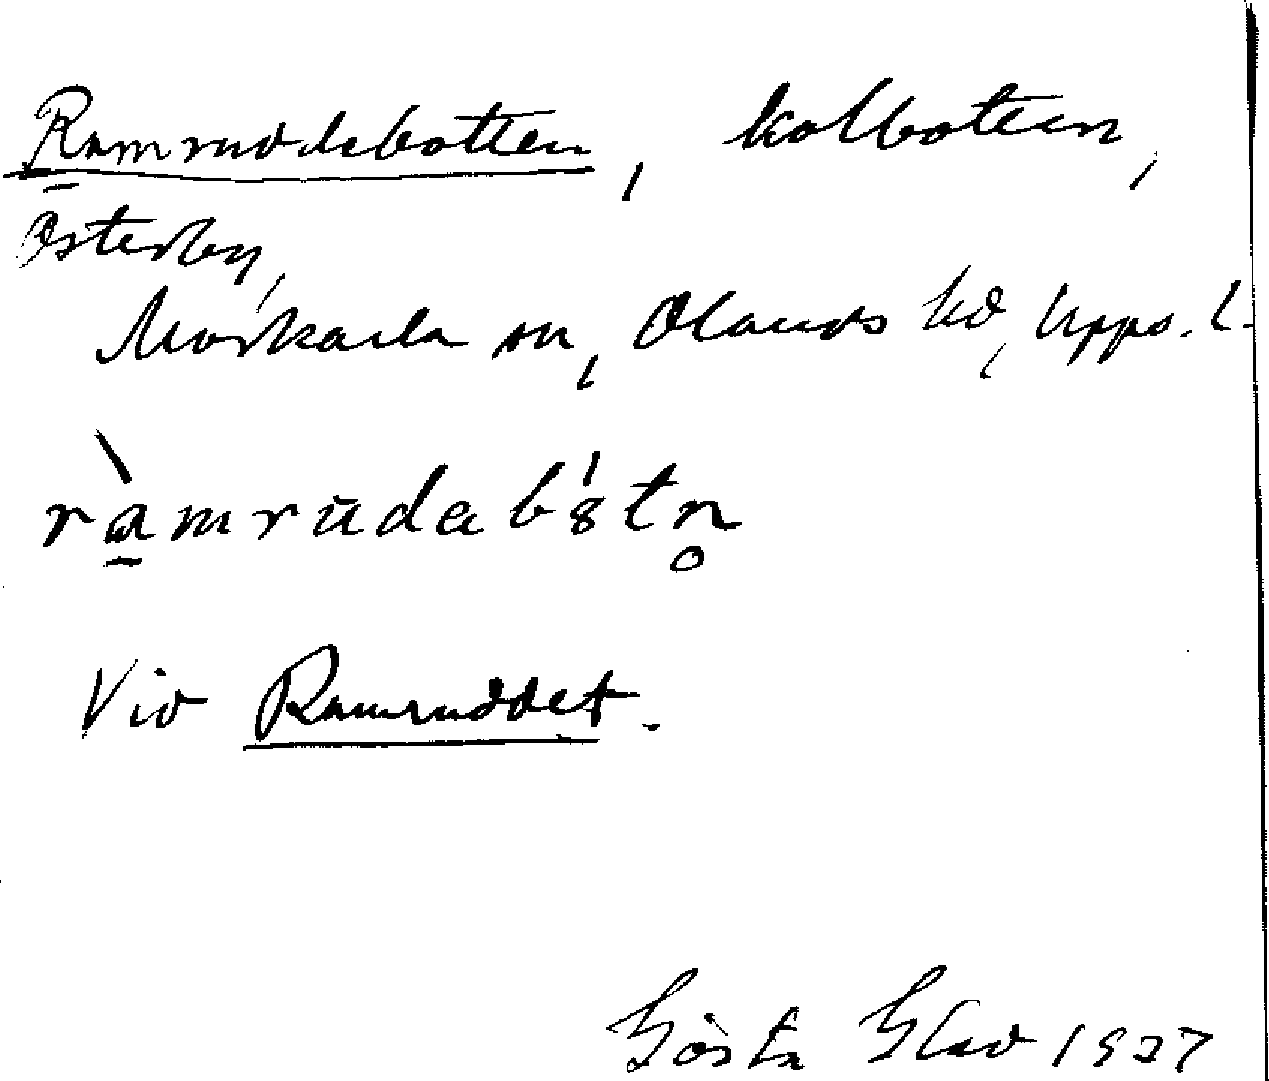 Ramruddsbotten, kolbotten,
Österby,
Morkarla sn, Olands hd, Upps. l.
ràmrūdabótn̥
Vid Ramruddet.
Gösta Glad 1937